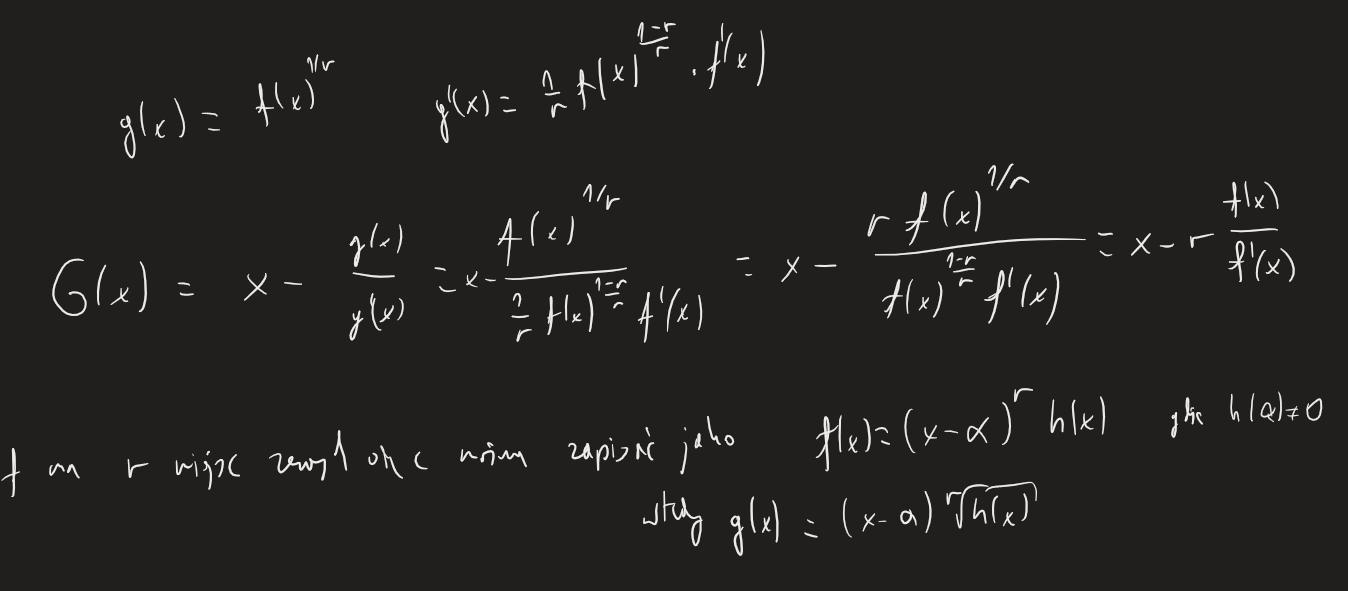 g(x) = f(x)^{1/r} g'(x) = \frac{1}{r} f(x)^{\frac{1-r}{r}} · f'(x)
G(x) = x - \frac{g(x)}{g'(x)} = x - \frac{f(x)^{1/r}}{\frac{1}{r} f(x)^{\frac{1-r}{r}} f'(x)} = x - \frac{r f(x)^{1/r}}{f(x)^{\frac{1-r}{r}} f'(x)} = x - r \frac{f(x)}{f'(x)}
f ma r miejsc zerowych można zapisać jako f(x) = (x-α)^r h(x) gdzie h(α) ≠ 0
wtedy g(x) = (x-α) \sqrt[r]{h(x)}